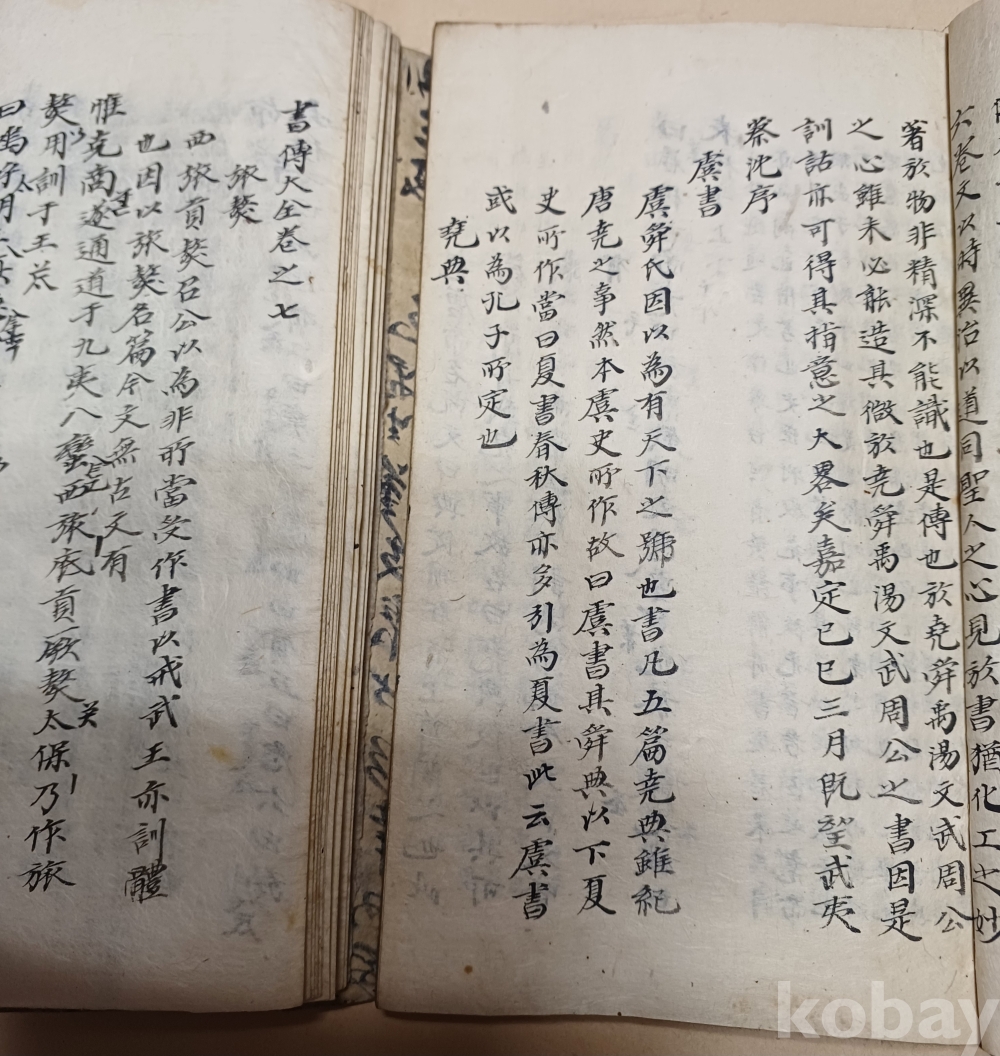 六卷文以時異治以道同聖人之心見於書猶化工之妙
著於物非精深不能識也是傳也於堯舜禹湯文武周公
之心雖未必能造其微於堯舜禹湯文武周公之書因是
訓詁亦可得其指意之大畧矣嘉定己巳三月旣望武夷
蔡沈序
虞書
虞舜氏因以為有天下之號也書凡五篇堯典雖紀
唐堯之事然本虞史所作故曰虞書其舜典以下夏
史所作當曰夏書春秋傳亦多引為夏書此云虞書
或以為孔子所定也
堯典
書傳大全卷之七
旅獒
西旅貢獒召公以為非所當受作書以戒武王亦訓體
也因以旅獒名篇今文無古文有
惟克商遂通道于九夷八蠻西旅底貢厥獒太保乃作旅
獒用訓于王
kobay